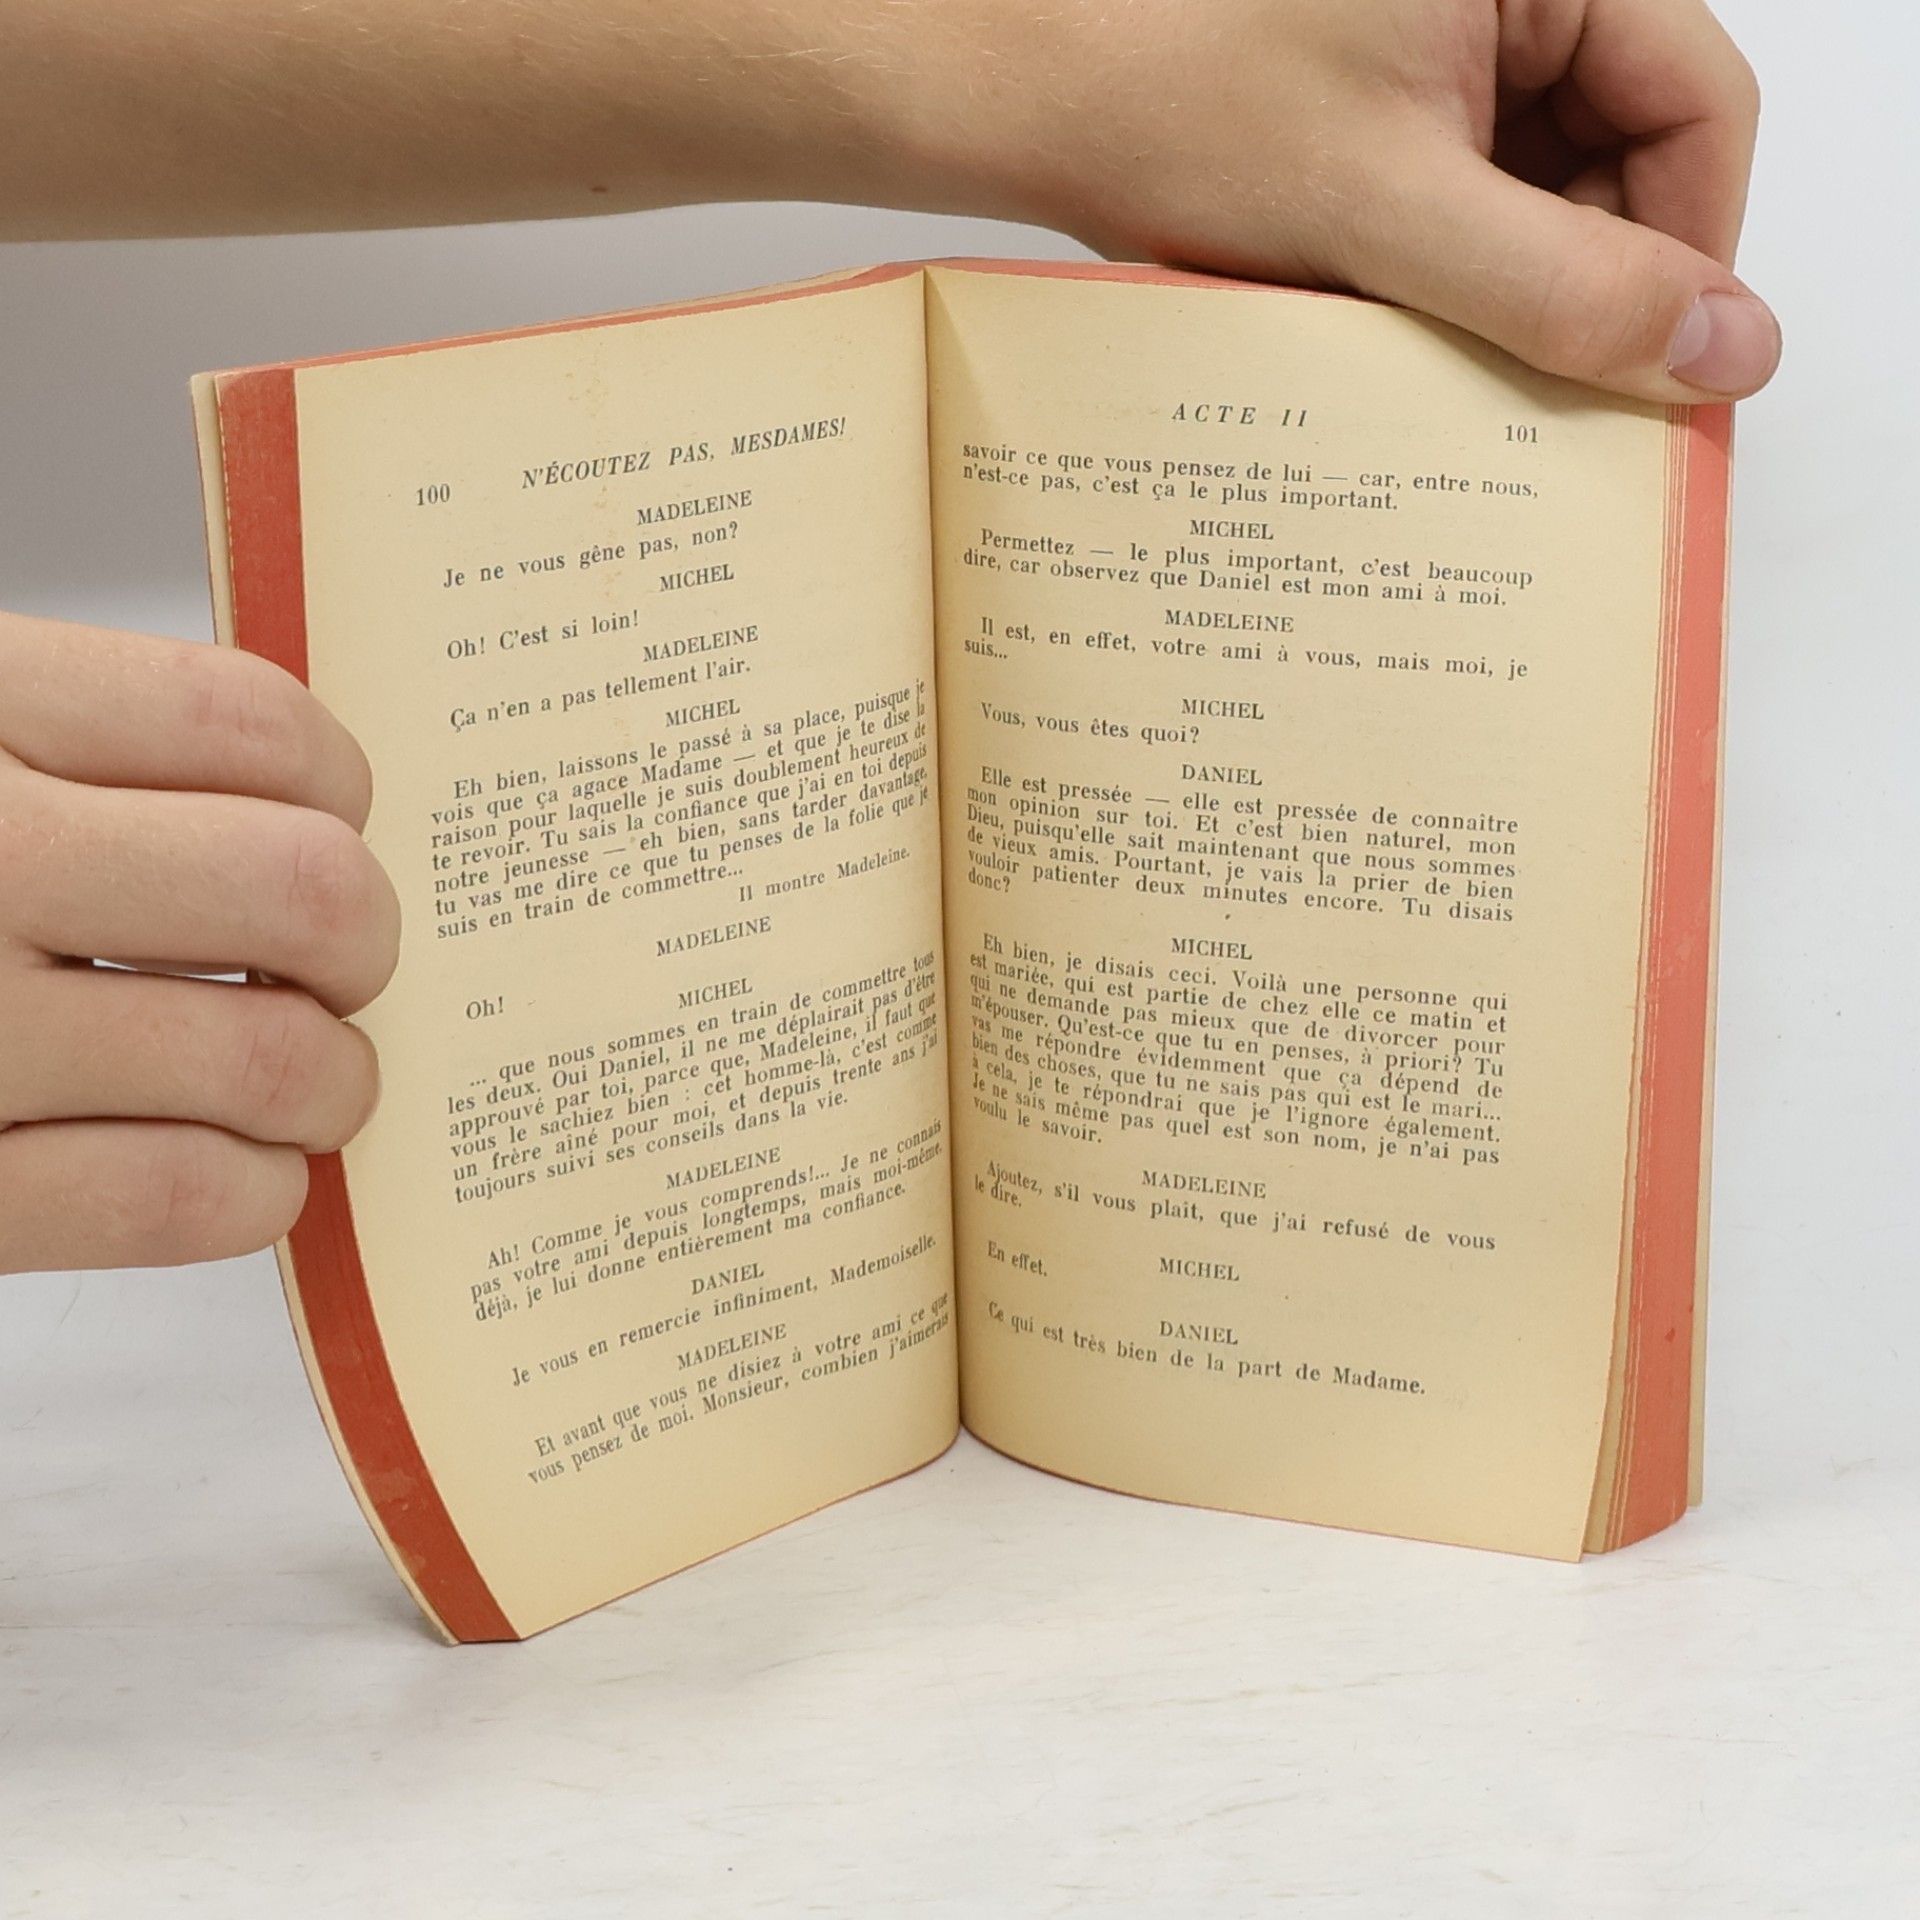 100 N'ÉCOUTEZ PAS, MESDAMES!
MADELEINE
Je ne vous gêne pas, non?
MICHEL
Oh! C'est si loin!
MADELEINE
Ça n'en a pas tellement l'air.
MICHEL
Eh bien, laissons le passé à sa place, puisque je
vois que ça agace Madame — et que je te dise la
raison pour laquelle je suis doublement heureux de
te revoir. Tu sais la confiance que j'ai en toi depuis
notre jeunesse — eh bien, sans tarder davantage,
tu vas me dire ce que tu penses de la folie que je
suis en train de commettre...
Il montre Madeleine.
MADELEINE
Oh!
MICHEL
... que nous sommes en train de commettre tous
les deux. Oui Daniel, il ne me déplairait pas d'être
approuvé par toi, parce que, Madeleine, il faut que
vous le sachiez bien : cet homme-là, c'est comme
un frère aîné pour moi, et depuis trente ans j'ai
toujours suivi ses conseils dans la vie.
MADELEINE
Ah! Comme je vous comprends!... Je ne connais
pas votre ami depuis longtemps, mais moi-même,
déjà, je lui donne entièrement ma confiance.
DANIEL
Je vous en remercie infiniment, Mademoiselle.
MADELEINE
Et avant que vous ne disiez à votre ami ce que
vous pensez de moi. Monsieur, combien j'aimerais
ACTE II 101
savoir ce que vous pensez de lui — car, entre nous,
n'est-ce pas, c'est ça le plus important.
MICHEL
Permettez — le plus important, c'est beaucoup
dire, car observez que Daniel est mon ami à moi.
MADELEINE
Il est, en effet, votre ami à vous, mais moi, je
suis...
MICHEL
Vous, vous êtes quoi?
DANIEL
Elle est pressée — elle est pressée de connaître
mon opinion sur toi. Et c'est bien naturel, mon
Dieu, puisqu'elle sait maintenant que nous sommes
de vieux amis. Pourtant, je vais la prier de bien
vouloir patienter deux minutes encore. Tu disais
donc?
MICHEL
Eh bien, je disais ceci. Voilà une personne qui
est mariée, qui est partie de chez elle ce matin et
qui ne demande pas mieux que de divorcer pour
m'épouser. Qu'est-ce que tu en penses, à priori? Tu
vas me répondre évidemment que ça dépend de
bien des choses, que tu ne sais pas qui est le mari...
à cela, je te répondrai que je l'ignore également.
Je ne sais même pas quel est son nom, je n'ai pas
voulu le savoir.
MADELEINE
Ajoutez, s'il vous plait, que j'ai refusé de vous
le dire.
MICHEL
En effet.
DANIEL
Ce qui est très bien de la part de Madame.